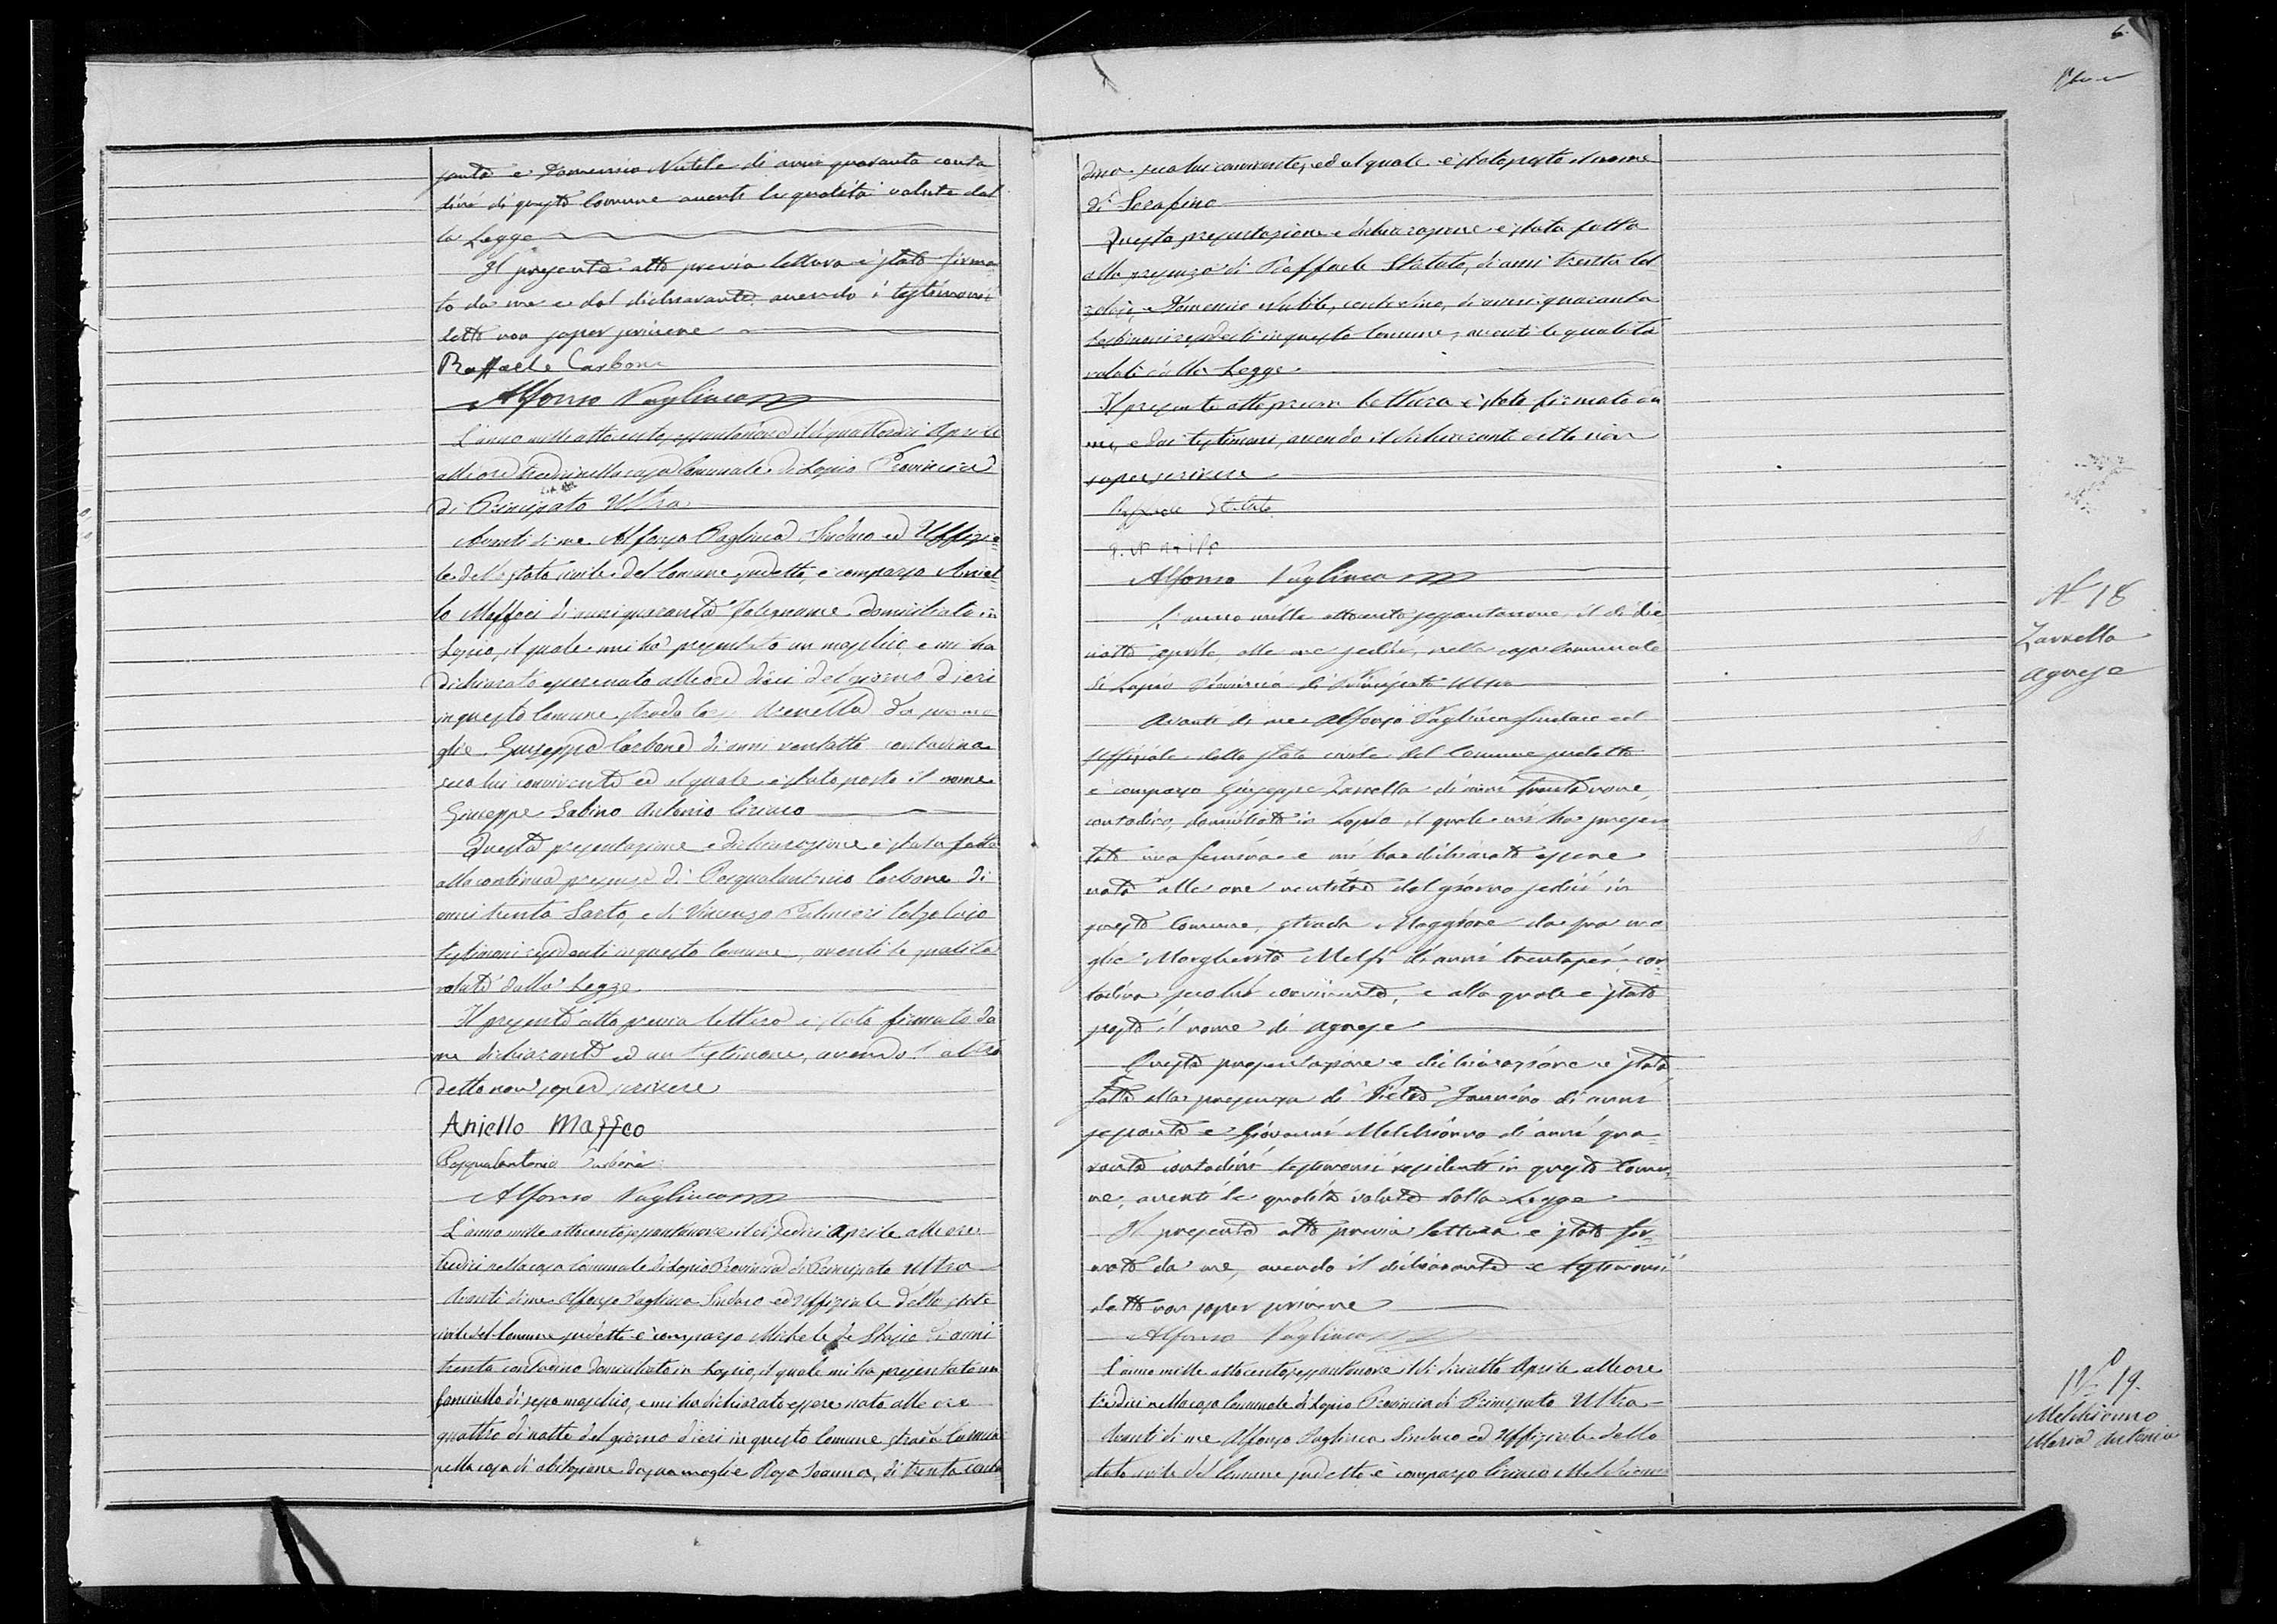 6.
santa e Domenico Nutile di anni quaranta conta
dini di questo Comune aventi le qualità volute dal
la Legge
Il presente atto previa lettura è stato firma
to da me e dal dichiarante avendo i testimoni
detto non saper scrivere
Raffaele Carbone
Alfonso Pagliuca
L'anno mille ottocento sessantanove il dì quattordici Aprile
alle ore tredici nella casa Comunale di Lapio Provincia
di Principato Ultra
Avanti di me Alfonso Pagliuca Sindaco ed Uffizia
le dello stato civile del Comune sudetto, è comparso Aniel
lo Maffeo di anni quaranta Falegname domiciliato in
Lapio, il quale mi ha presentato un maschio e mi ha
dichiarato essere nato alle ore dieci del giorno d'ieri
in questo Comune strada da sua mo
glie Giuseppa Carbone di anni ventotto contadina
seco lui convivente ed al quale è stato posto il nome
Giuseppe Sabino Antonio Ciriaco
Questa presentazione e dichiarazione è stata fatta
alla continua presenza di Pasqualantonio Carbone di
anni trenta Sarto, e di Vincenzo Palmieri Calzolajo
testimoni residenti in questo Comune, aventi le qualità
volute dalla Legge
Il presente atto previa lettura è stato firmato da
me dichiarante ed un testimone, avendo l'altro
detto non saper scrivere
Aniello Maffeo
Pasqualantonio Carbone
Alfonso Pagliuca
L'anno mille ottocento sessantanove il dì sedici Aprile alle ore
tredici nella casa Comunale di Lapio Provincia di Principato Ultra
Avanti di me Alfonso Pagliuca Sindaco ed Uffiziale dello stato
civile del Comune sudetto è comparso Michele de Stasio di anni
trenta contadino domiciliato in Lapio, il quale mi ha presentato un
fanciullo di sesso maschio, e mi ha dichiarato essere nato alle ore
quattro di notte del giorno d'ieri in questo Comune strada
nella casa di abitazione da sua moglie Rosa Ioanna, di trenta conta
dina seco lui convivente, ed al quale è stato posto il nome
di Serafino
Questa presentazione e dichiarazione è stata fatta
alla presenza di Raffaele Statuto, di anni trenta cal
zolajo, Domenico Nutile, contadino, di anni quaranta
testimoni residenti in questo Comune, aventi le qualità
volute dalla Legge
Il presente atto previa lettura è stato firmato da
me, e dai testimoni, avendo il dichiarante detto non
saper scrivere
Raffaele Statuto
Alfonso Pagliuca
L'anno mille ottocento sessantanove, il dì die
ciotto aprile, alle ore sedici, nella casa Comunale
di Lapio Provincia di Principato Ultra
Avanti di me Alfonso Pagliuca Sindaco ed
Uffiziale dello stato civile del Comune sudetto
è comparso Giuseppe Zarrella di anni trentanove,
contadino, domiciliato in Lapio il quale mi ha presen
tato una femina e mi ha dichiarato essere
nata alle ore ventitre del giorno sedici in
questo Comune, strada Maggiore da sua mo
glie Margherita Melfi di anni trentasei, con
tadina seco lui convivente, e alla quale è stato
posto il nome di Agnese
Questa presentazione e dichiarazione è stata
fatta alla presenza di Pietro Iannino di anni
sessanta e Giovanni Melchionno di anni qua
ranta contadini testimoni residenti in questo Comu
ne, aventi le qualità volute dalla Legge
Il presente atto previa lettura è stato fir
mato da me, avendo il dichiarante e testimoni
detto non saper scrivere
Alfonso Pagliuca
L'anno mille ottocento sessantanove il dì diciotto Aprile alle ore
tredici nella casa Comunale di Lapio Provincia di Principato Ultra
Avanti di me Alfonso Pagliuca Sindaco ed Uffiziale dello
stato civile del Comune sudetto è comparso Ciriaco Melchionno
N 18
Zarrella
Agnese
No 19.
Melchionno
Maria Antonia